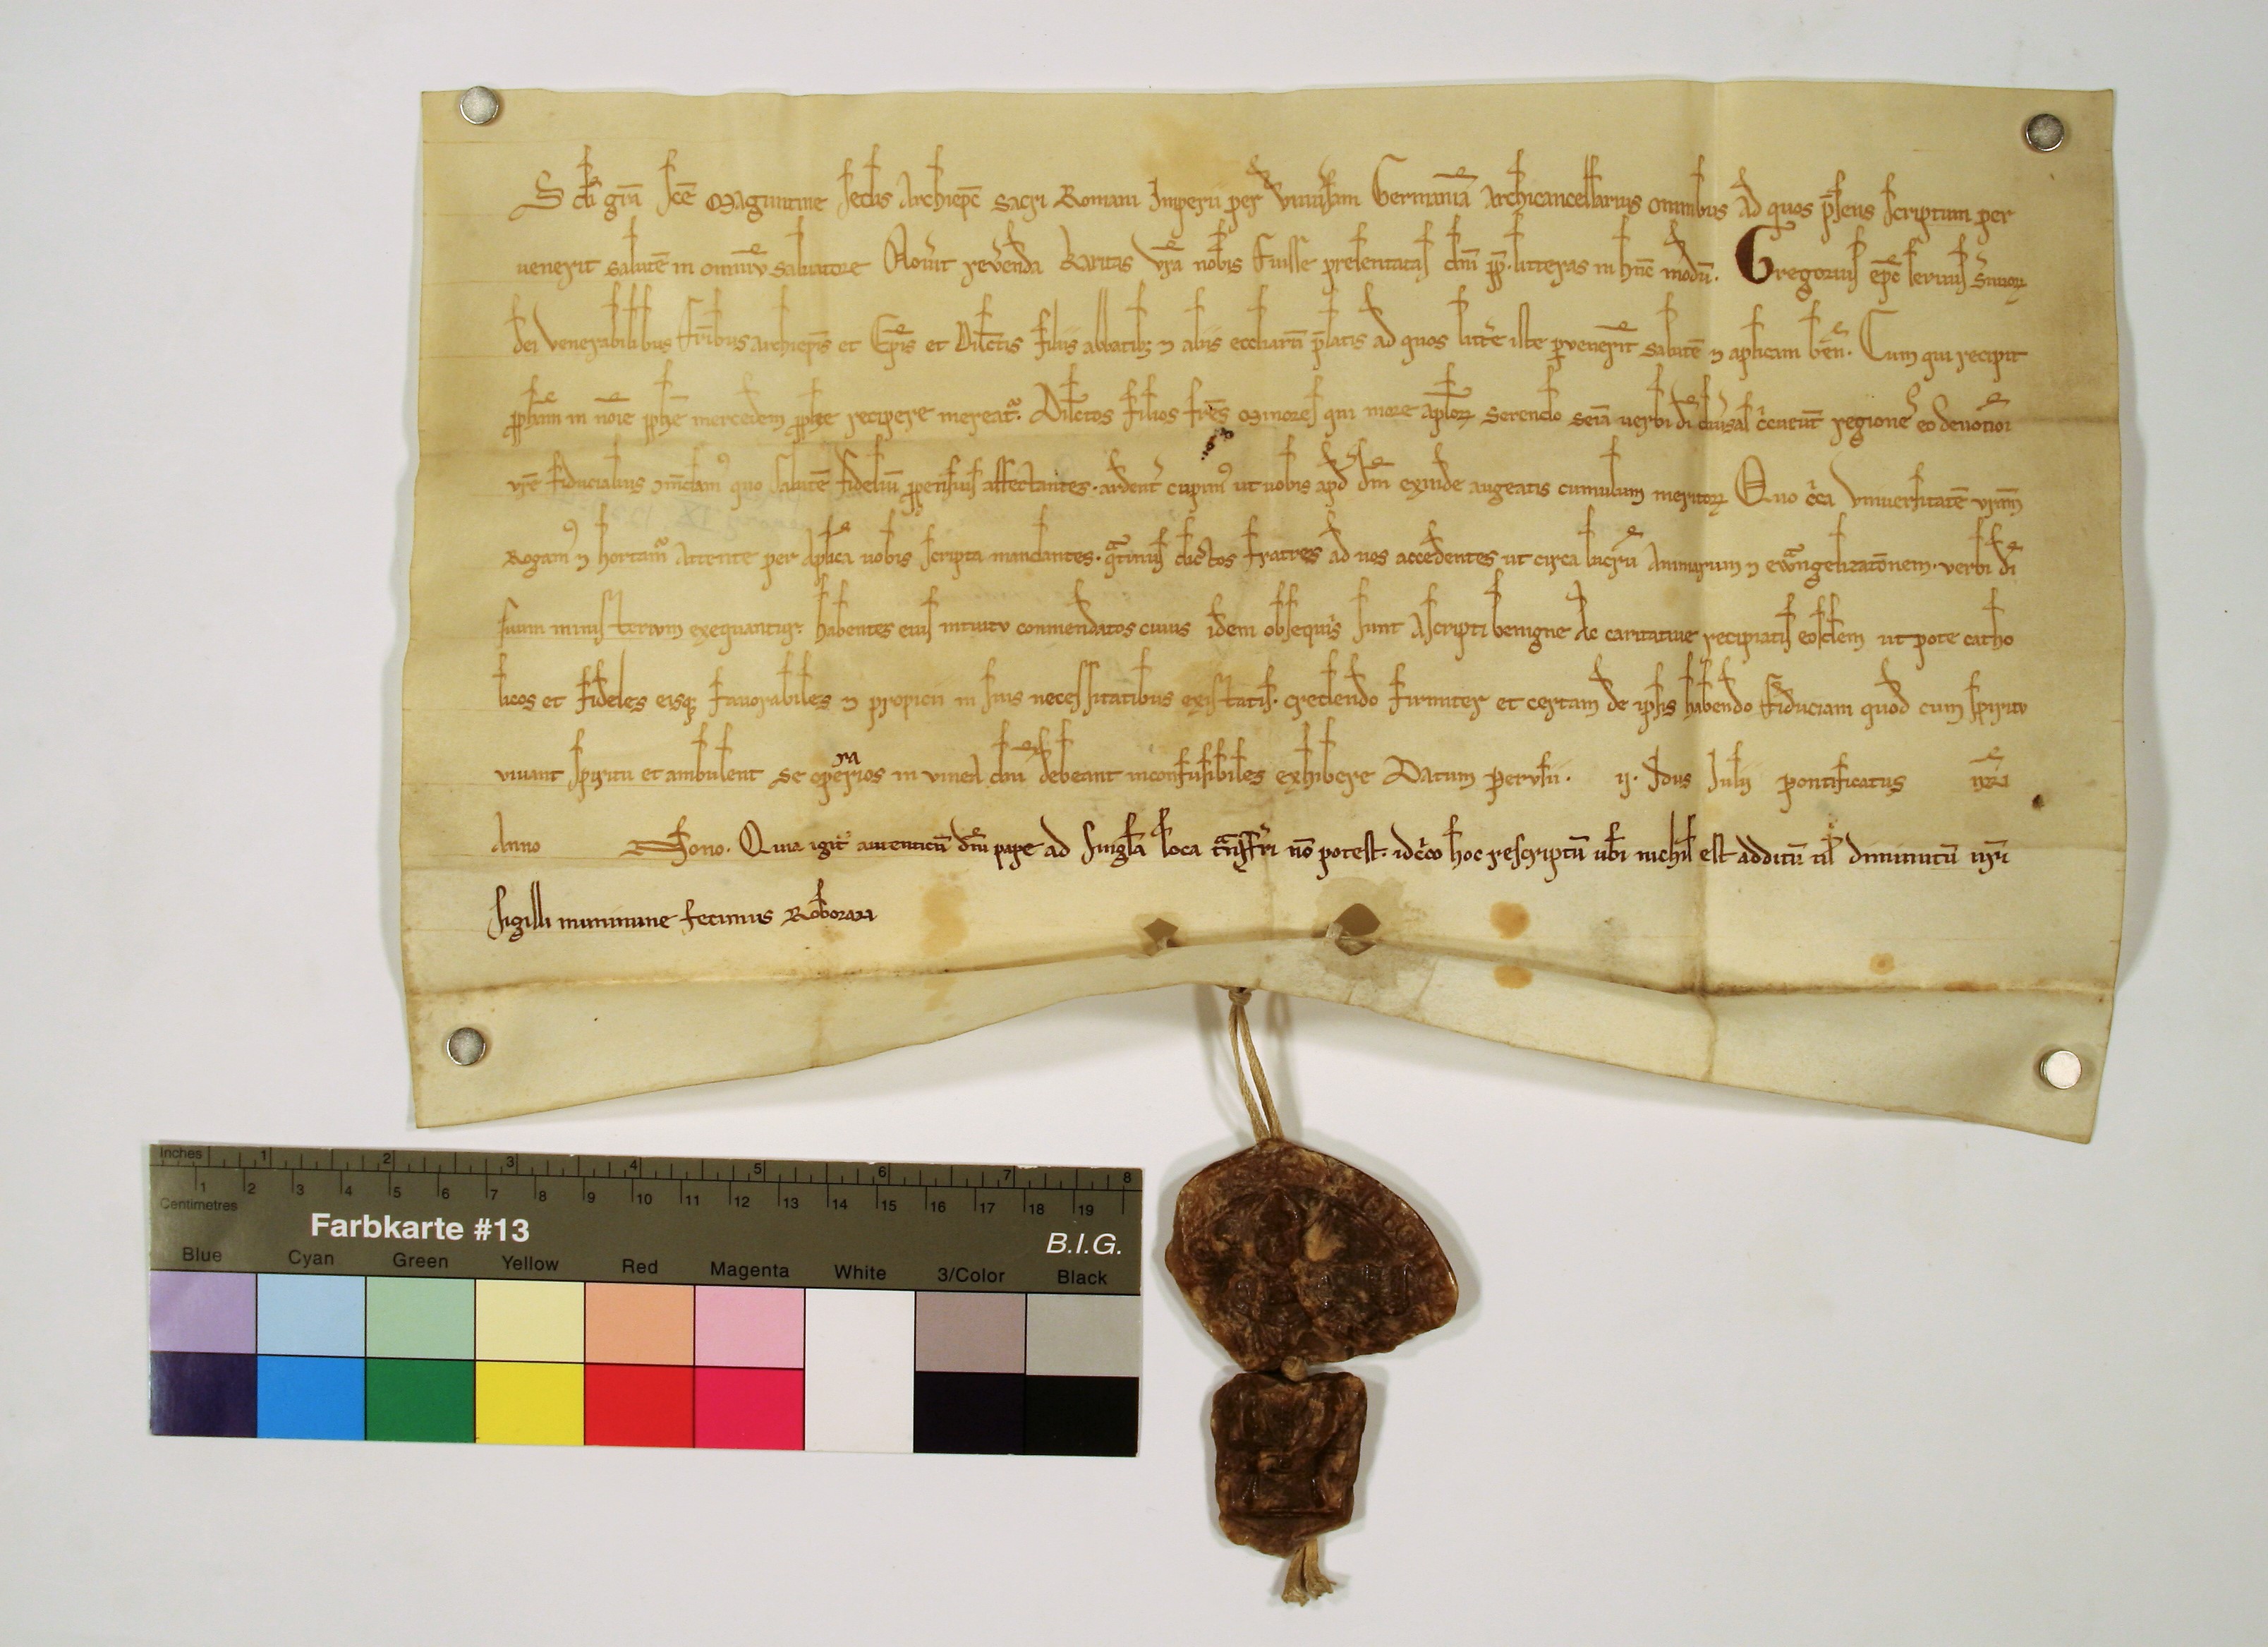 S di grã Sce Maguntine Sedis Archiepc̄ Sacri Romani Imperii per Vniu̾sam Germaniā Archicancellarius omnibus Ad quos p̄sens Scriptum per
uenerit salutē in omniū saluatore Nou̾it reu̾enda karitas vr̄a nobis fuisse presentatas dni pp̄. litteras in hūc modū. Gregorius ep̄c seruus seruoꝝ
dei Venerabilibus fr̄ibus archiepis et Ep̄is et Dilc̄tis filiis abbatibꝫ ⁊ aliis eccliarū p̄latis ad quos litt̾e iste peruenerīt salutē ⁊ aplicam bēn. Cum qui recipit
pphām in nōie pphē mercedem pphe recipere mereat̾. Dilc̄tos filios fr̄es Minores qui more apl̄oꝝ serendo seīa uerbi di
vr̄e fiducialius quo salutē fideliū affectantes. ardent̾ cupim᷒ ut uobis apd dm̄ exinde augeatis cumulum meritoꝝ Quo c̾ca Vniuersitatē vr̄am
Rogam᷒ ⁊ hortam̾ Attente per Aplica uobis scripta mandantes. q̄tinus dictos fratres ad uos accedentes ut circa lucrū Animarum ⁊ ewangelizatōnem. verbi di
suum ministerium exequantur habentes eius intuitu conmendatos cuius idem obsequiis sunt Ascripti benigne Ac caritatiue recipiatis eosdem ut pote catho
licos et fideles eisqꝫ fauorabiles ⁊ propicii in suis necessitatibus existatis. credendo firmiter et certam de ipsis habendo fiduciam quod cum spiritu
viuant spiritu et ambulent se operarios in vinea dni debeant inconfusibiles exhibere Datum Perusii. ij. Idus Julii pontificatus nr̄i
Anno Nono. Quia igit̾ autenticū dni pape ad singl̄a loca tn̄sferri nō potest. idc̾co hoc rescriptū ubi nichil est additū ul̄ diminutū nr̄i
sigilli munimine fecimus Roborari
Inches 1 2 3 4 5 6 7 8
1 2 3 4 5 6 7 8 9 10 11 12 13 14 15 16 17 18 19
Centimetres
Farbkarte #13
B.I.G.
Blue Cyan Green Yellow Red Magenta White 3/Color Black